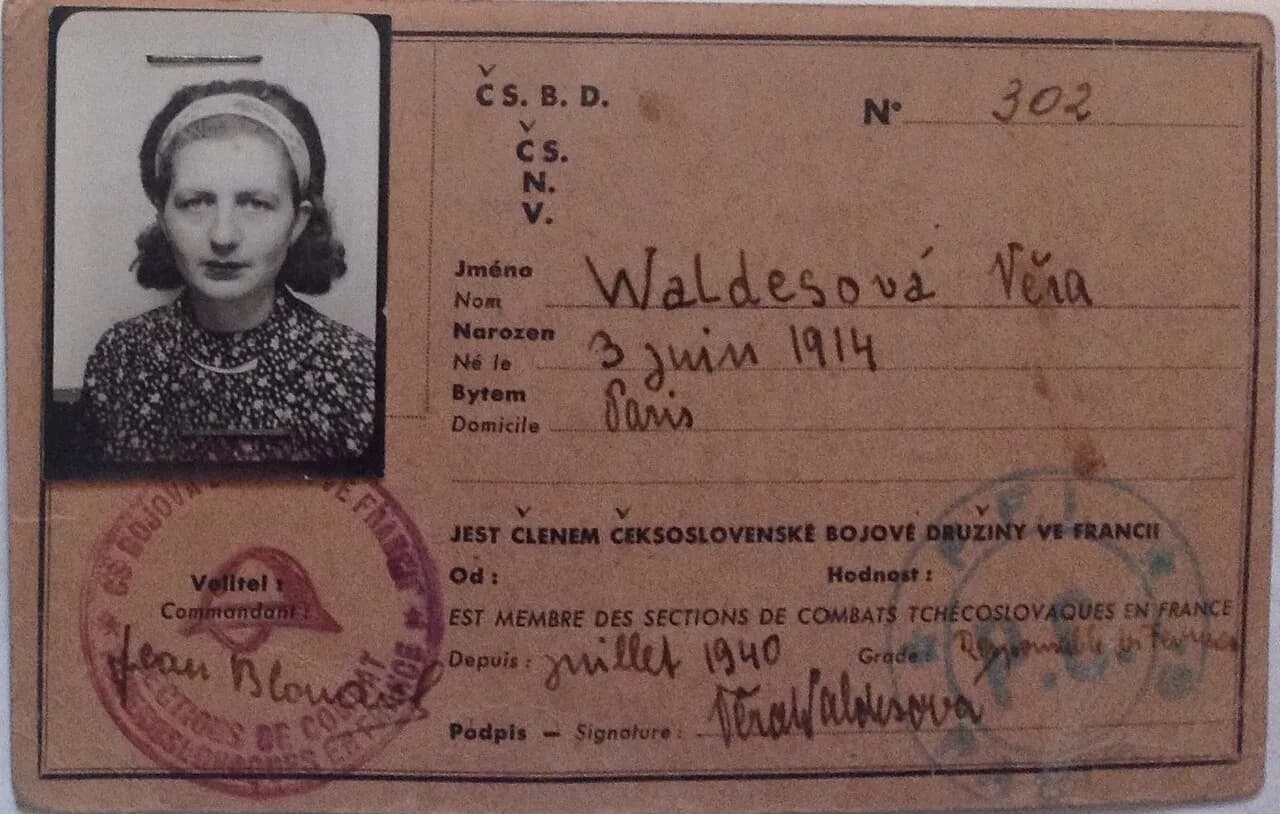 ČS. B. D.
N° 302
ČS.
N.
V.
Jméno
Nom Waldesová Věra
Narozen
Né le 3 juin 1914
Bytem
Domicile Paris
JEST ČLENEM ČEKSOSLOVENSKÉ BOJOVÉ DRUŽINY VE FRANCII
Velitel :
Commandant :
Jean
Od : Hodnost :
EST MEMBRE DES SECTIONS DE COMBATS TCHÉCOSLOVAQUES EN FRANCE
Depuis : juillet 1940 Grade : Responsable des Femmes
Podpis — Signature : Věra Waldesova
ČS BOJOVÁ VE FRANCII
SECTIONS DE COMBAT
TCHECOSLOVAQUES EN FRANCE
F. F. I.